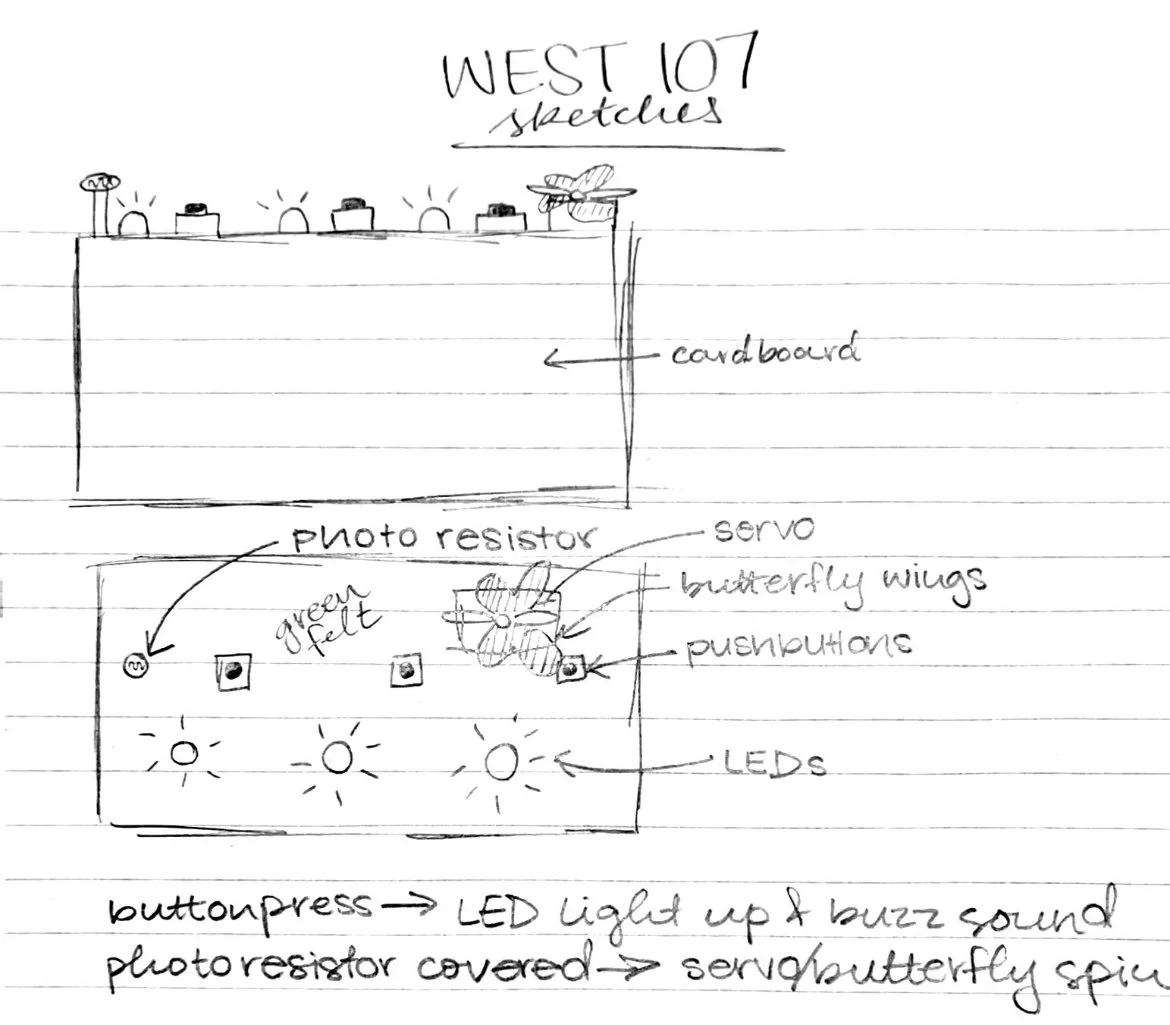 WEST 107
sketches
cardboard
photo resistor
servo
butterfly wings
green
felt
pushbuttons
LEDs
buttonpress → LED light up & buzz sound
photoresistor covered → servo/butterfly spin